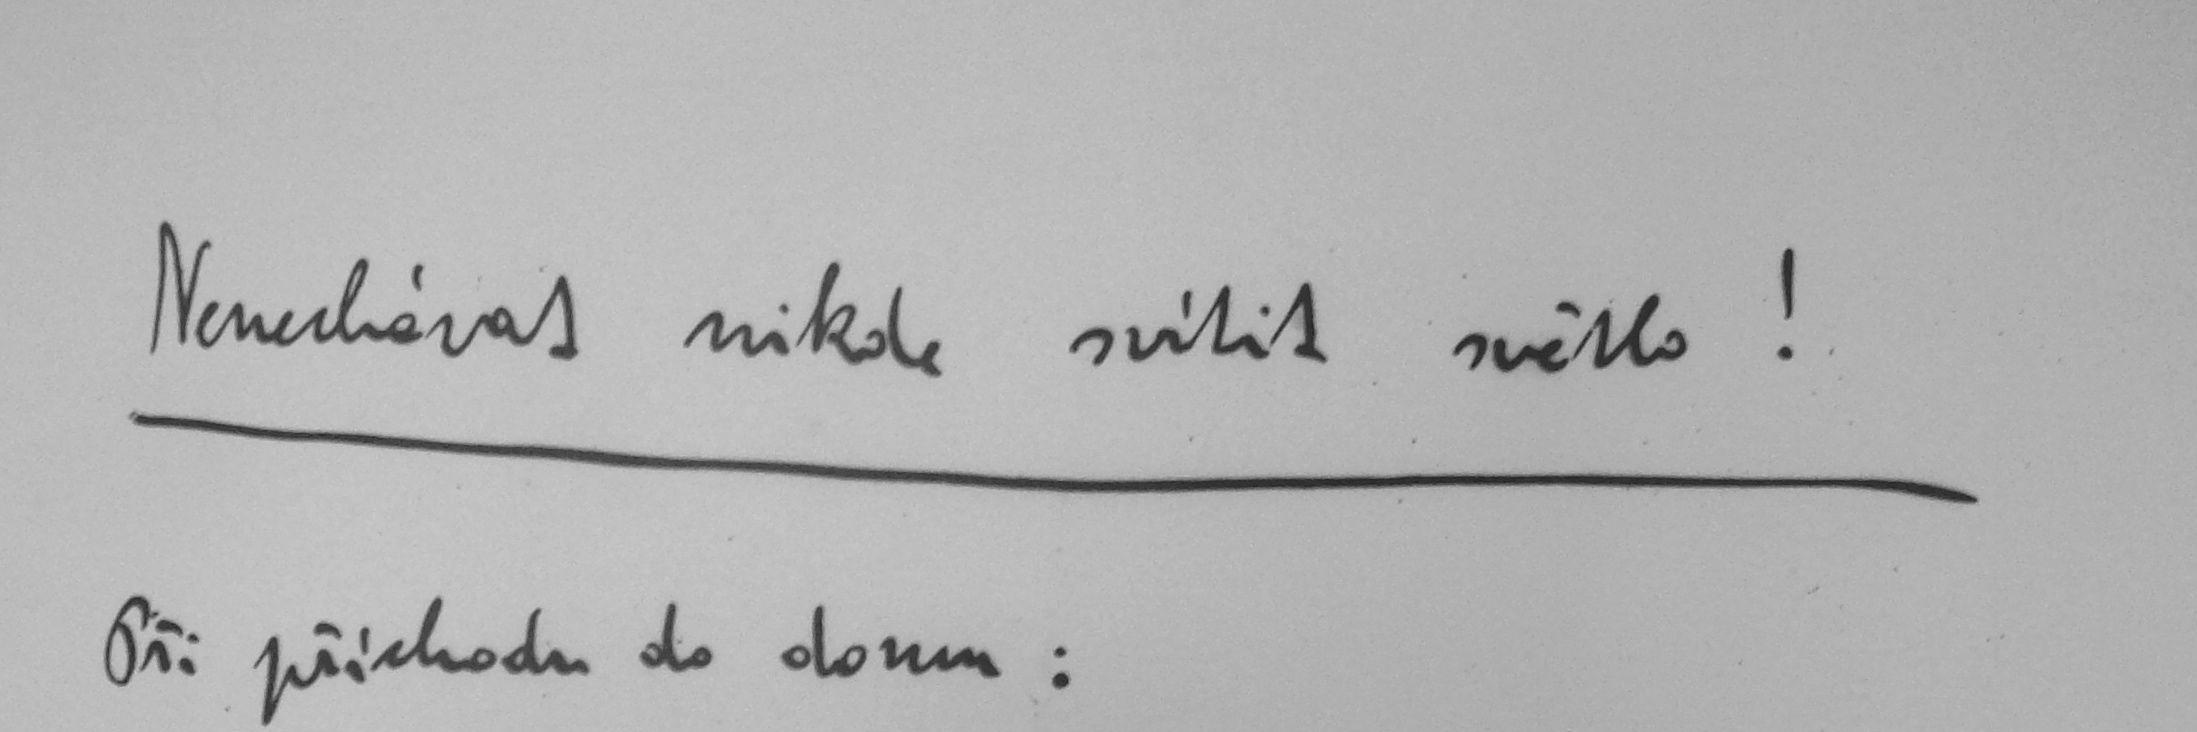 Nenechávat nikde svítit světlo !
Při příchodu do domu :